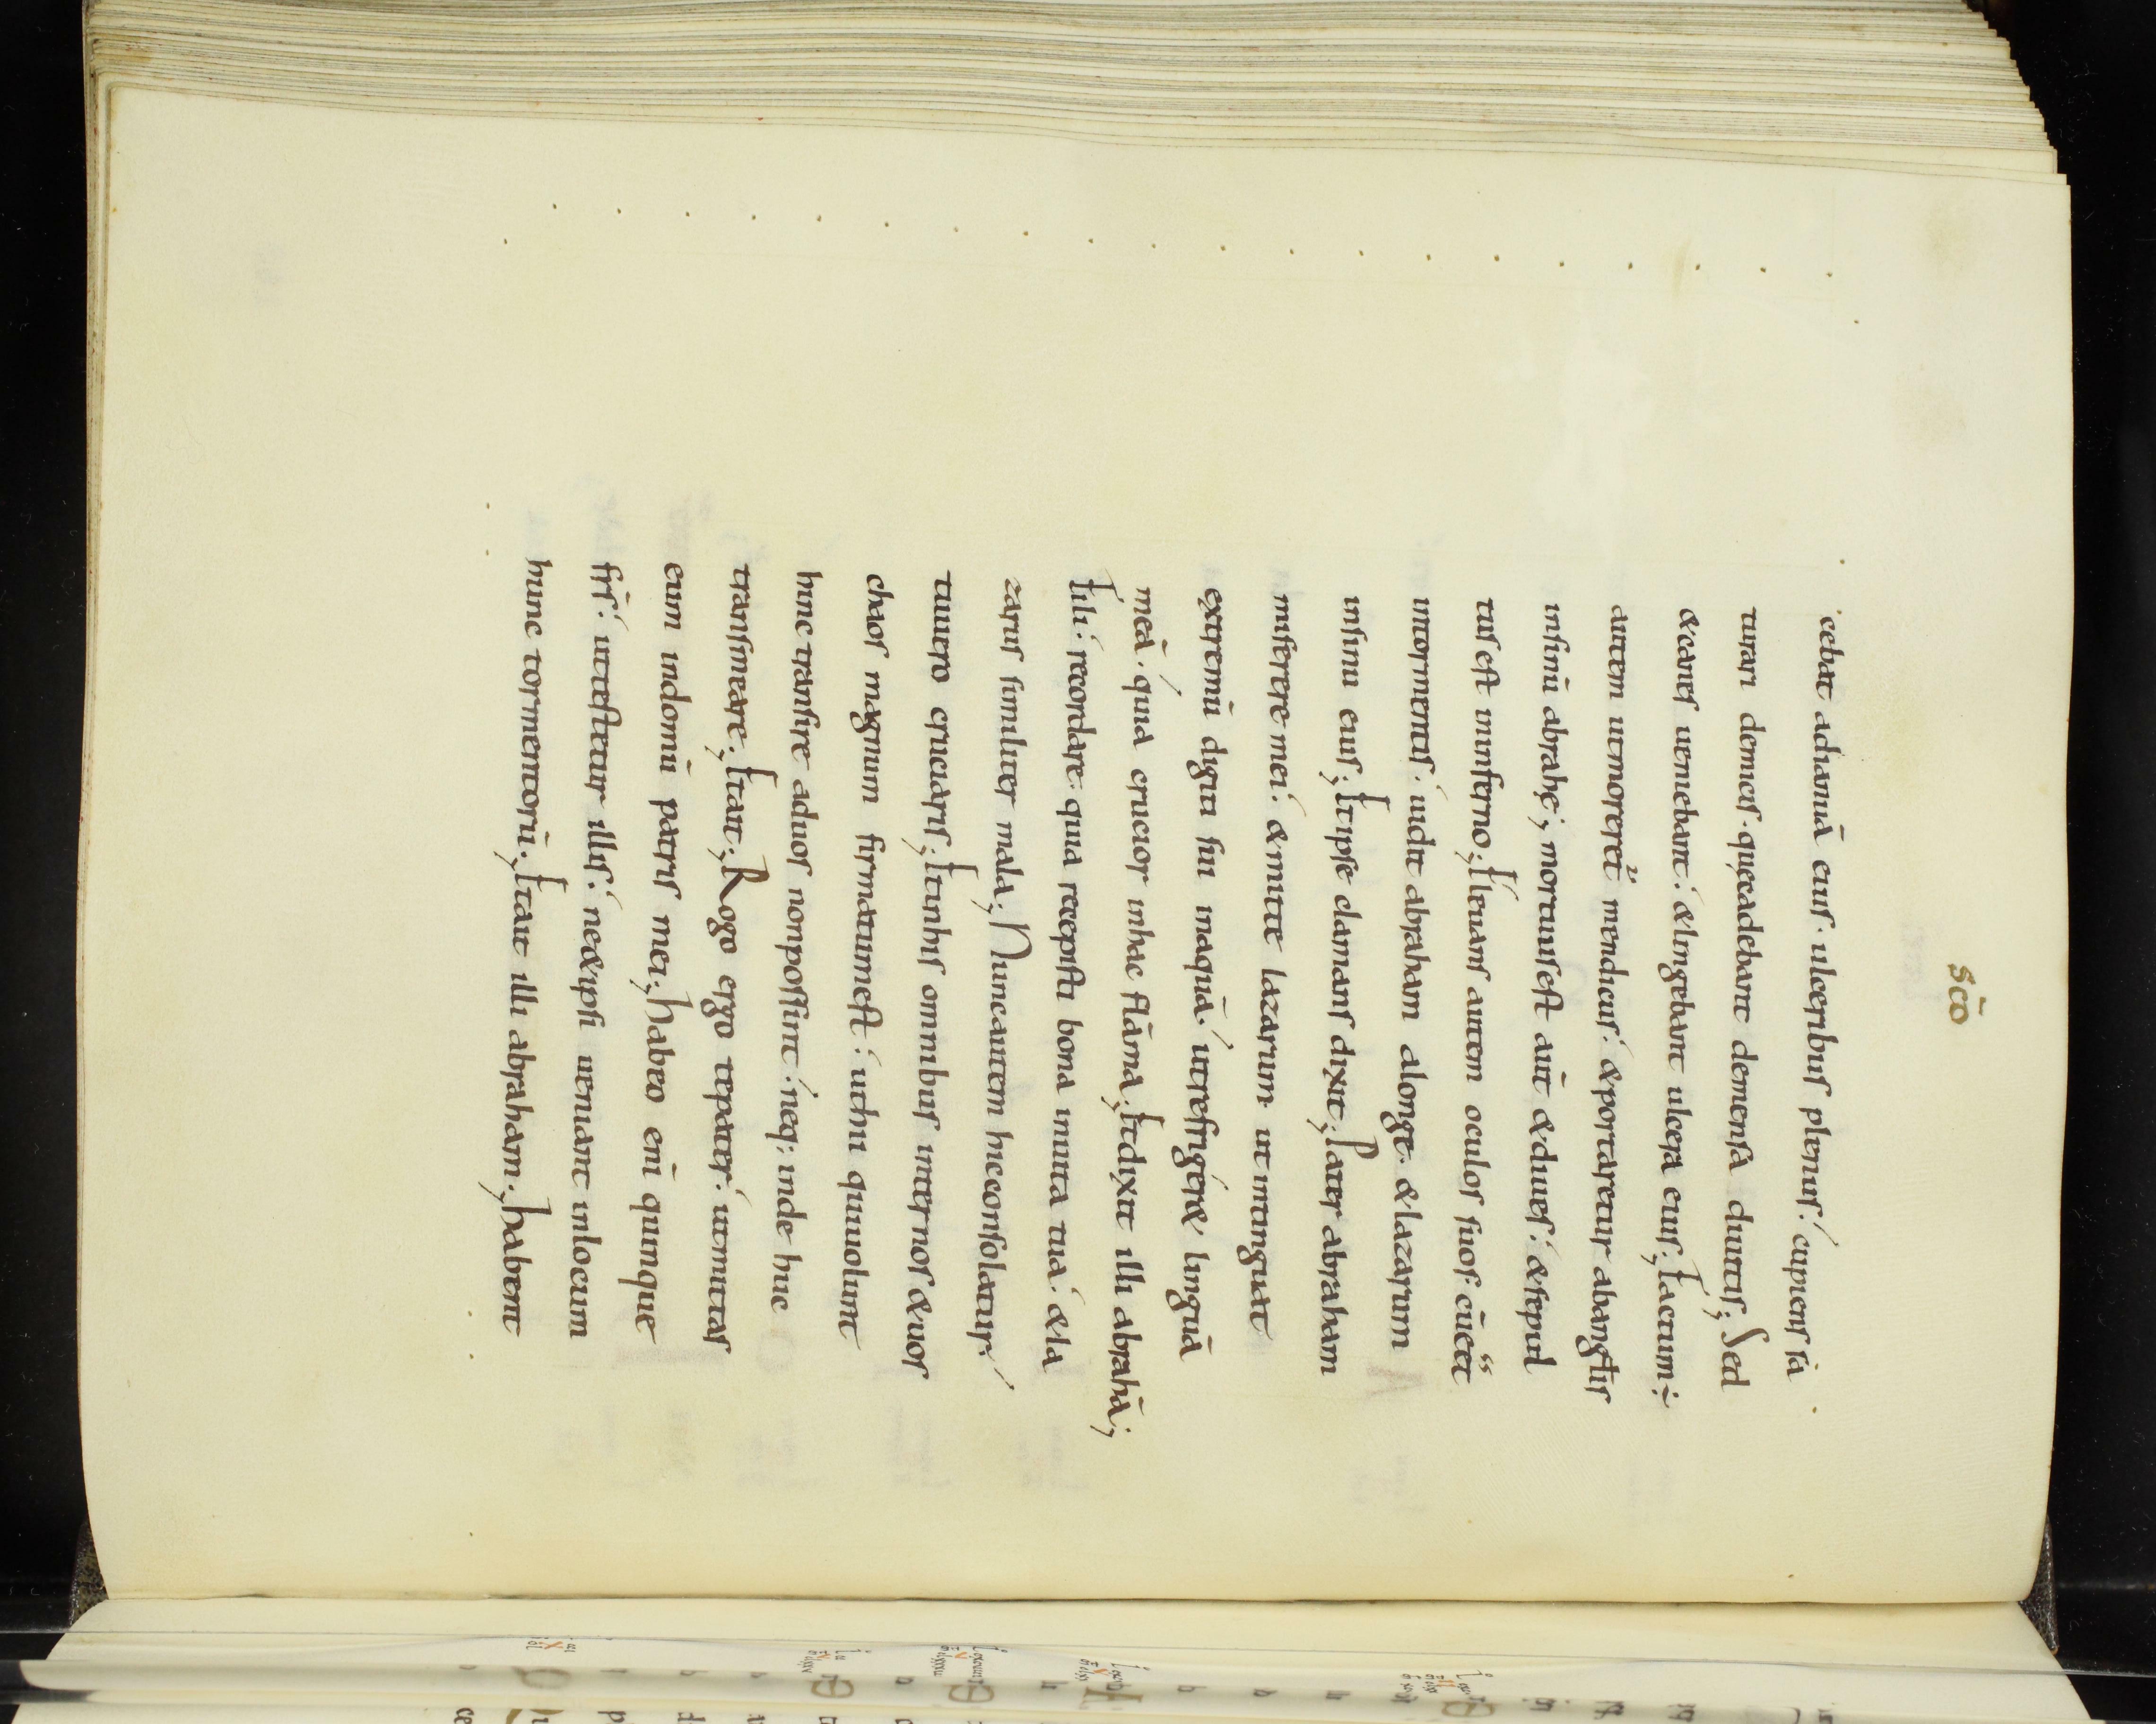 scd̄o
cebat adianuā eiuſ· ulceribuſ plenuſ: cupienſ ſa
turari demiciſ· quęcadebant demenſa diuitiſ; Sed
& caneſ ueniebant: &lingebant ulcera eiuſ; Factum÷
autem utmoreret᷑ mendicuſ: &portaretur abangłiſ
inſinū abrahę; mortuuſeſt aūt &diueſ: &ſepul
tuſ eſt ininferno; Eleuanſ autem oculoſ ſuoſ· cūeēt
intormentiſ· uidit abraham alonge· &lazarum
inſinu eiuſ; Etipſe clamanſ dixit; Pater abraham
miſerere mei: &mitte lazarum· ut intinguat
extremū digiti ſui inaquā· utrefrigér& linguā
meā· quia crucior inhac flāma; Etdixit illi abrahā;
Fili: recordare· quia recepiſti bona inuita tua: &la
zaruſ ſimiliter mala; Nuncautem hicconſolatur:
tuuero cruciariſ; Etinhiſ omnibuſ internoſ &uoſ
chaoſ magnum firmatumeſt: uthii quiuolunt
hinc tranſire aduoſ nonpoſſint· neq; inde huc
tranſmeare; Etait; Rogo ergo tepater· utmittaſ
eum indomū patriſ mei; habeo enī quinque
fr̄ſ: utteſtetur illiſ: ne&ipſi ueniant inlocum
hunc tormentorū; Etait illi abraham; habent